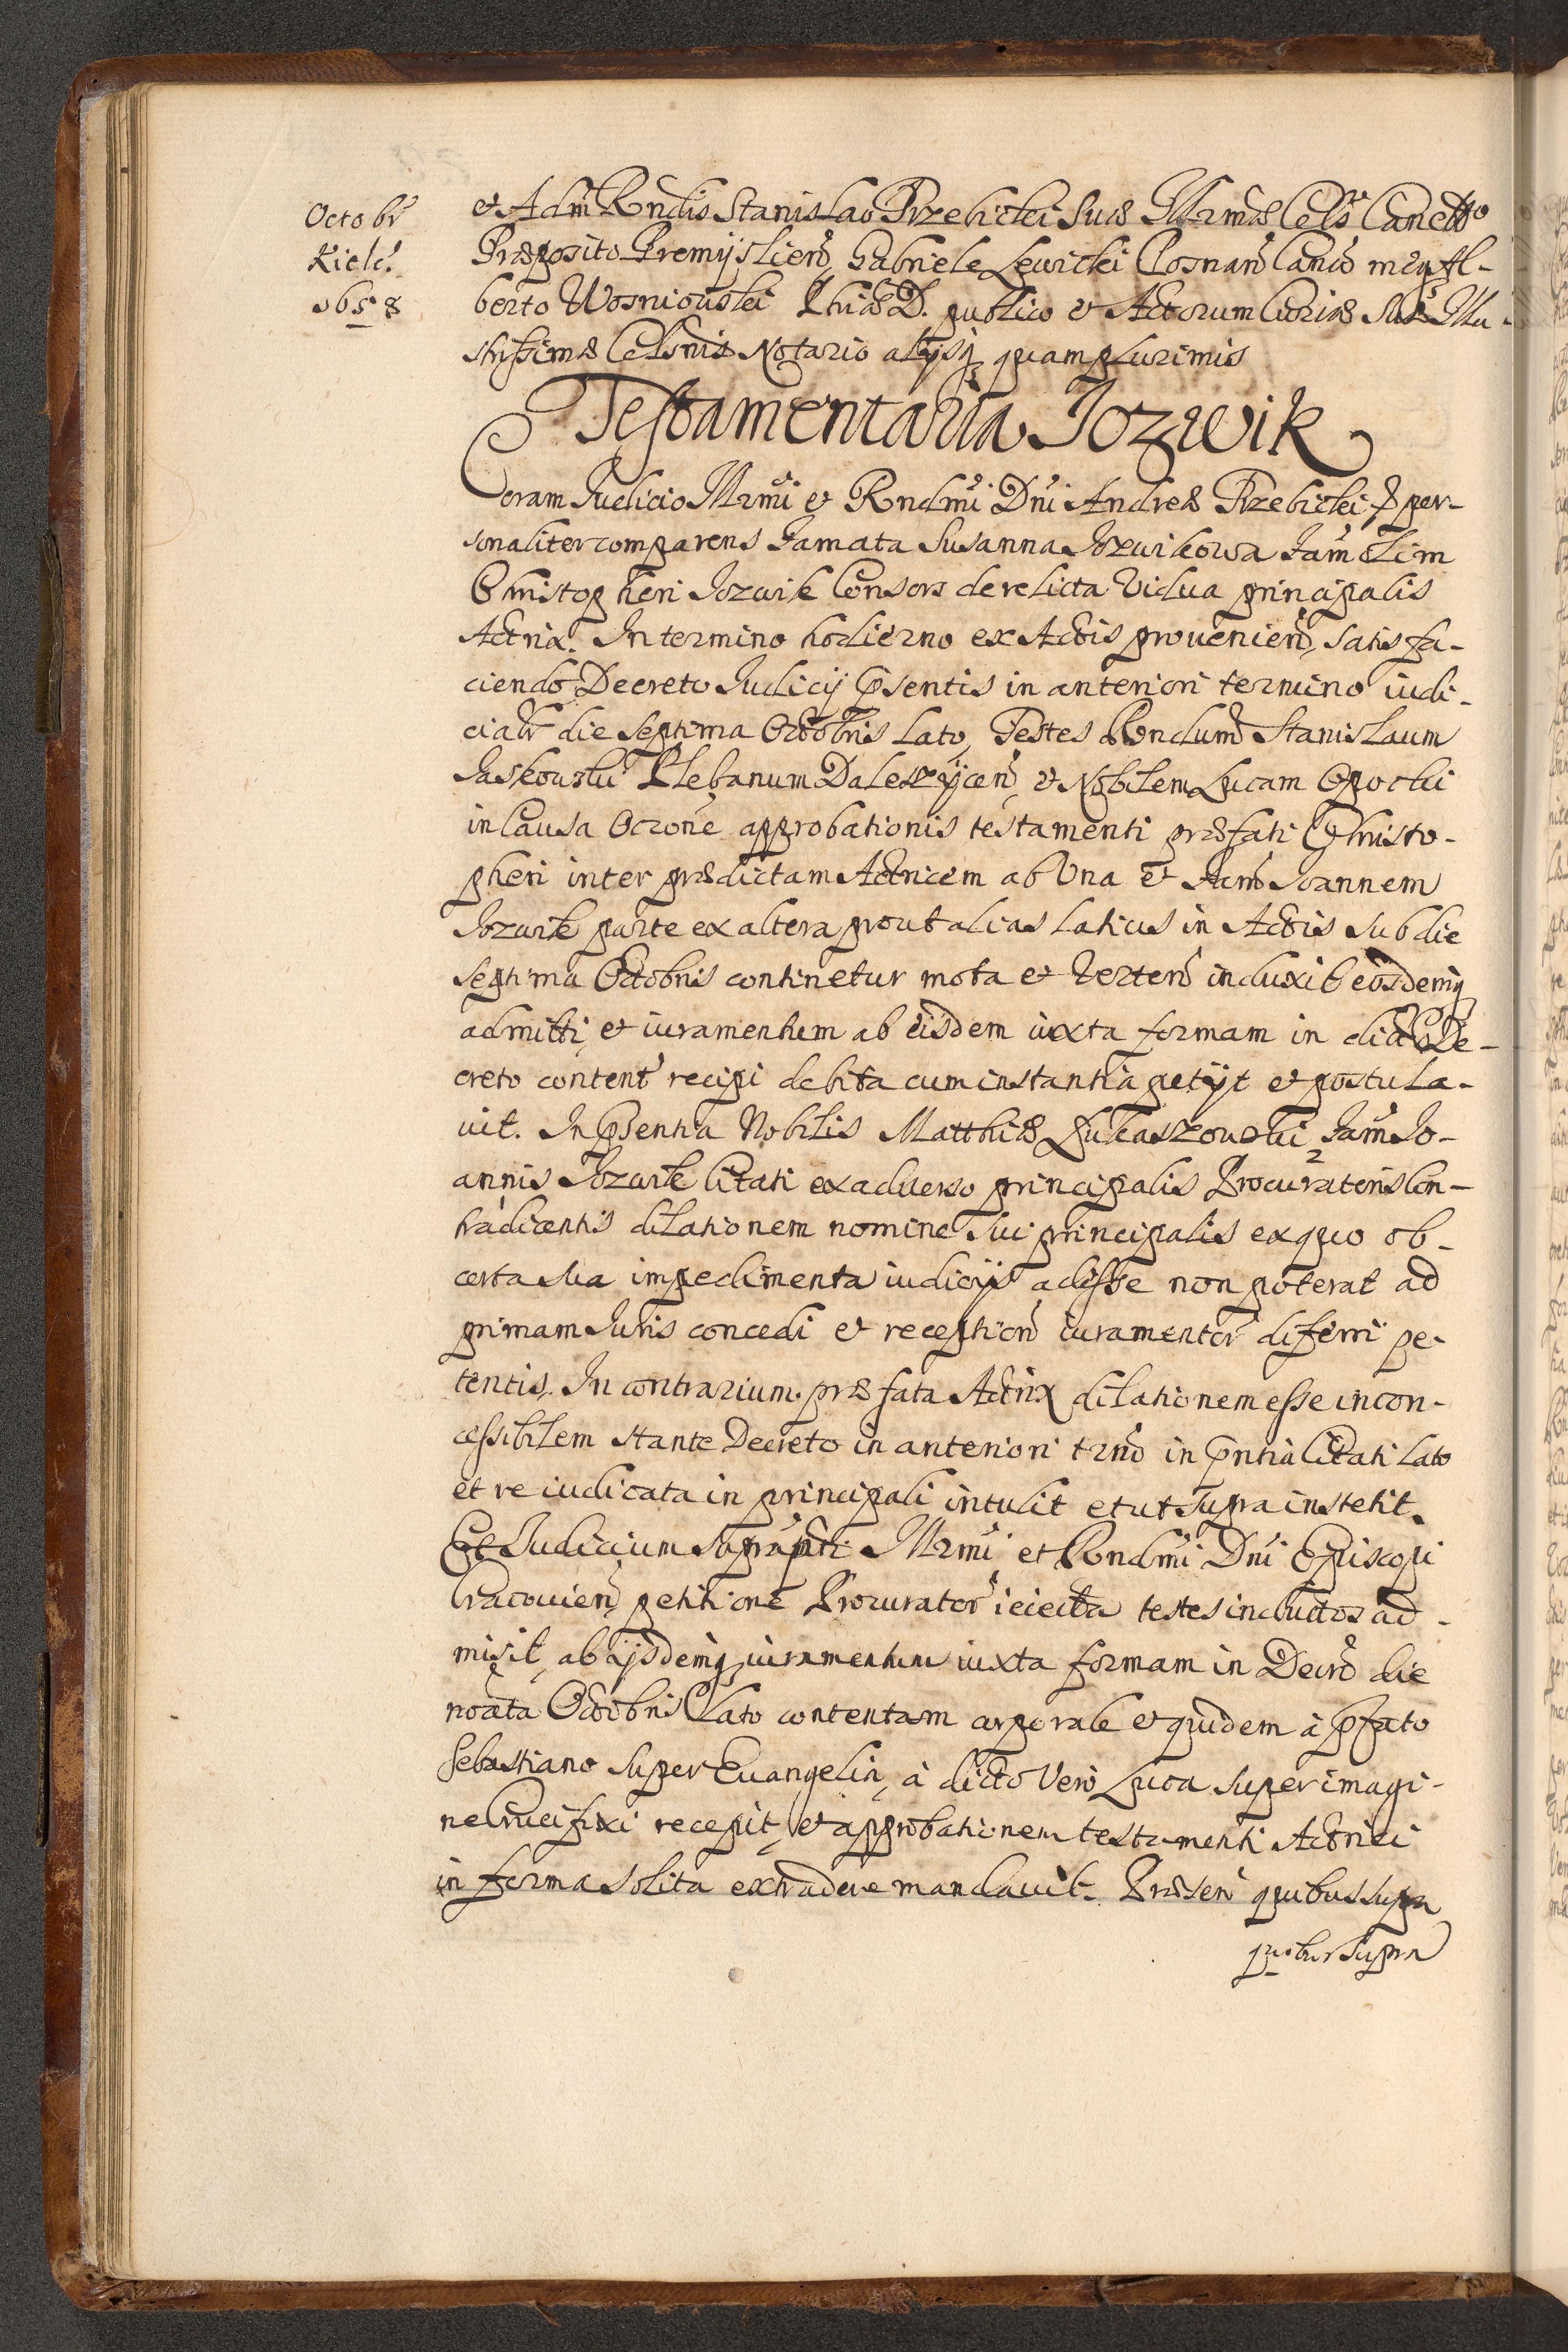 Octobr
Kielc.
1658
et Adm Rndis Stanislao Trzebicki Suæ Illrmæ Cels Cancellro
Præposito Premijslien, Gabriele Lewicki Posnan Canco meqz Al-
berto Wosniowski Phiæ D. publico et Actorum Curiæ Suæ Illu-
strissimæ Celsnis Notario alijsqz quamplurimis
Testamentaria Jozwik
Coram Judicio Illrmi et Rndmi Dni Andreæ Trzebicki E per-
sonaliter comparens Famata Susanna Jozwikowa Fam olim
Christopheri Jozwik Consors derelicta Vidua principalis
Actrix. In termino hodierno ex Actis prouenien, satisfa-
ciendo Decreto Judicij psentis in anteriori termino iudi-
cialr die septima Octobris lato, Testes Rndum Stanislaum
Jaskowski Plebanum Daleszÿcen, et Nobilem Lucam Opocki
in Causa Occone approbationis testamenti præfati Christo-
pheri inter prædictam Actricem ab Una et Fam Joannem
Jozwik parte ex altera prout alias latius in Actis sub die
septima Octobris continetur mota et Verten induxit eosdemqz
admitti, et iuramentum ab eisdem iuxta formam in dicto De-
creto content recipi debita cum instantia petijt et postula-
uit. In psentia Nobilis Matthiæ Lukaszowski Fam Jo-
annis Jozwik Citati ex aduerso principalis Procuratoris Con-
tradicentis dilationem nomine sui principalis ex quo ob
certa sua impedimenta iudicijs adesse non poterat ad
primam Juris concedi et reception iuramentor differri pe-
tentis. In contrarium præfata Actrix dilationem esse incon-
cessibilem stante Decreto in anteriori trno in pntia Citati lato
et re iudicata in principali intulit et ut supra institit.
Et Judicium suprapti Illrmi et Rndmi Dni Episcopi
Cracouien, petitione Procurator ieiecta testes inductos ad-
misit, ab ijsdemqz iuramentum iuxta formam in Decro die
noata Octobris lato contentam corporale et quidem à pfato
Sebastiano super Euangelia, à dicto Vero Luca super imagi-
ne Crucifixi recepit, et approbationem testamenti Actrici
in forma solita extradere mandauit. Præsen quibus supra
quibus supra